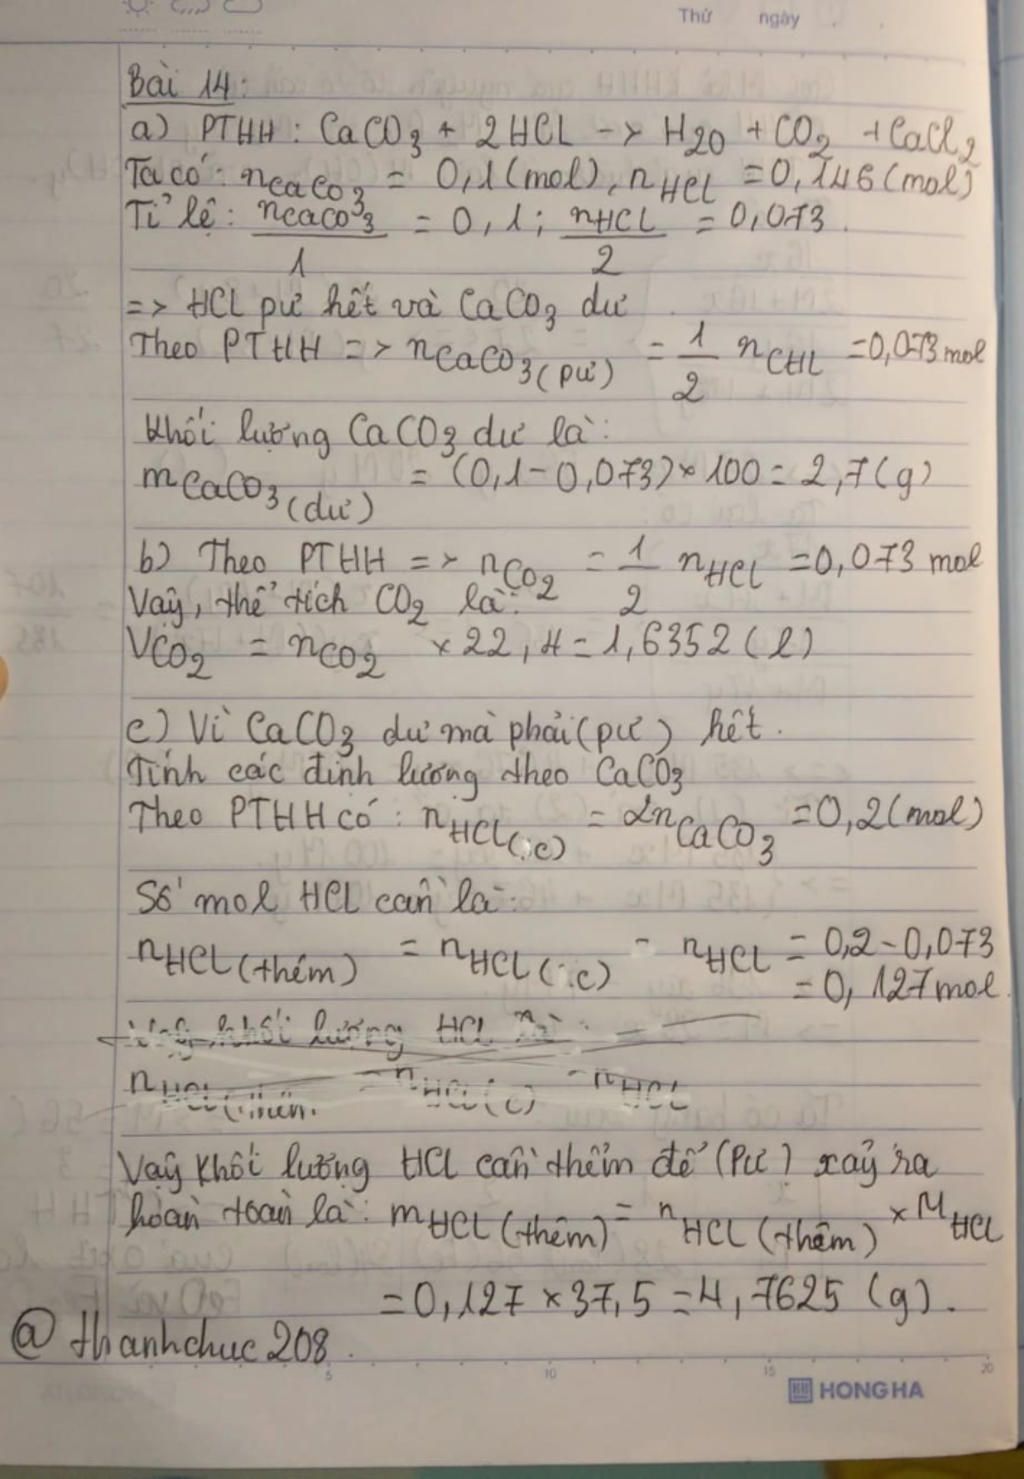 Thứ ngày
Bài 14:
a) PTHH: CaCO3 + 2HCL -> H2O + CO2 + CaCl2
Ta có: nCaCO3 = 0,1(mol), nHCl = 0,146(mol)
Tỉ lệ: nCaCO3/1 = 0,1; nHCL/2 = 0,073.
=> HCL pư hết và CaCO3 dư
Theo PTHH => nCaCO3(pư) = 1/2 nCHL = 0,073 mol
Khối lượng CaCO3 dư là:
mCaCO3(dư) = (0,1-0,073)×100 = 2,7(g)
b) Theo PTHH => nCO2 = 1/2 nHCl = 0,073 mol
Vậy, thể tích CO2 là:
VCO2 = nCO2 × 22,4 = 1,6352(l)
c) Vì CaCO3 dư mà phải(pư) hết.
Tính các định lương theo CaCO3
Theo PTHH có: nHCL(:c) = 2nCaCO3 = 0,2(mol)
Số mol HCL cần là:
nHCL(thêm) = nHCL(:c) - nHCL = 0,2-0,073
= 0,127 mol.
khối lương HCL là:
nHCL(thêm. = nHCL(c) - nHCL
Vậy khối lượng HCL cần thêm để (Pư) xảy ra
hoàn toàn là: mHCL(thêm) = nHCL(thêm) × MHCL
= 0,127 × 37,5 = 4,7625 (g).
@thanhchuc208.
5 10 15 20
HONG HA